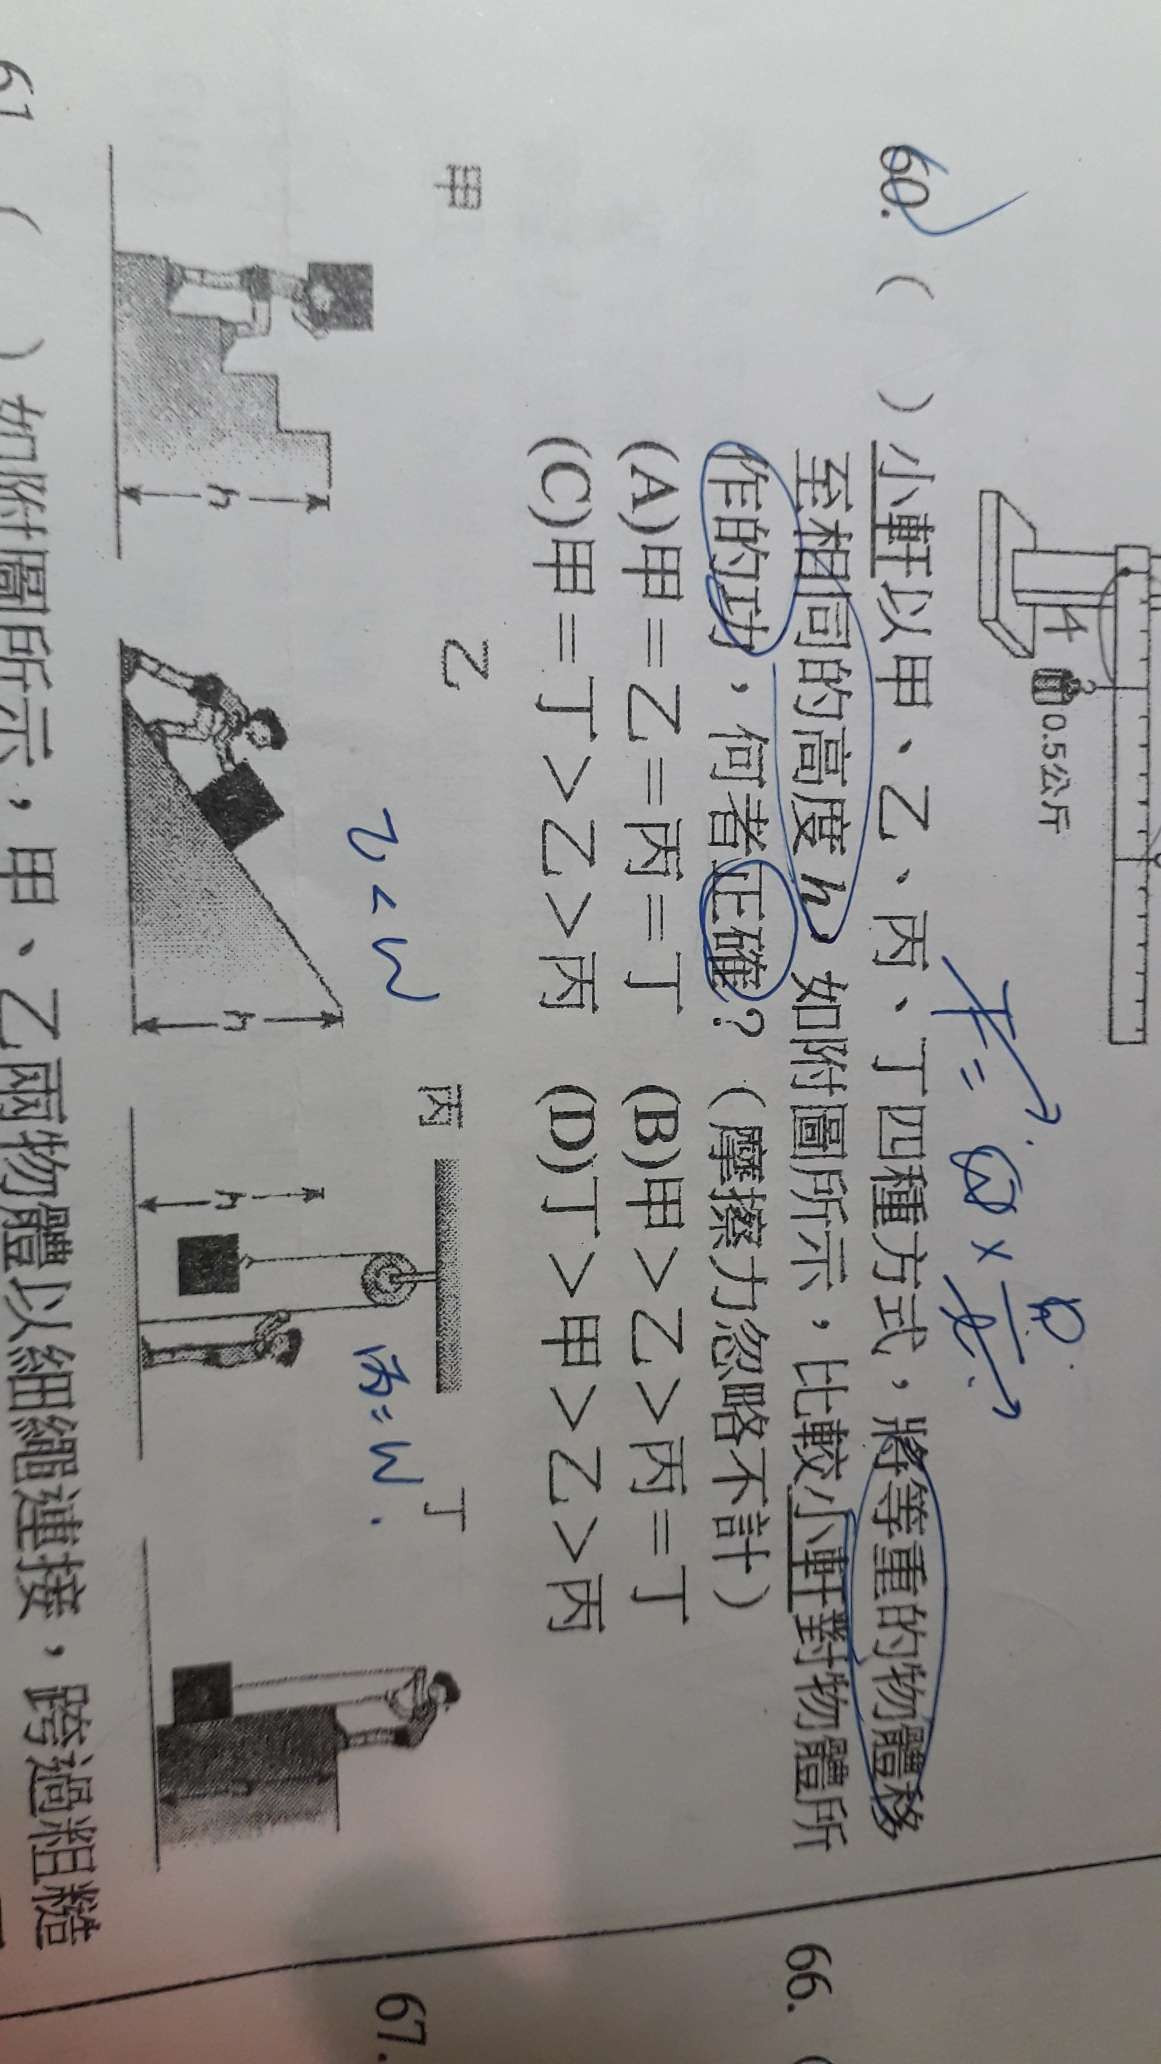 4
0.5公斤
60. (　　) 小軒以甲、乙、丙、丁四種方式，將等重的物體移
至相同的高度h，如附圖所示，比較小軒對物體所
作的功，何者正確？（摩擦力忽略不計）
(A)甲＝乙＝丙＝丁 (B)甲＞乙＞丙＝丁
(C)甲＝丁＞乙＞丙 (D)丁＞甲＞乙＞丙
甲 乙 丙 丁
乙<W
丙=W.
h h h h
61. (　　) 如附圖所示，甲、乙兩物體以細繩連接，跨過粗糙
66. (
67.